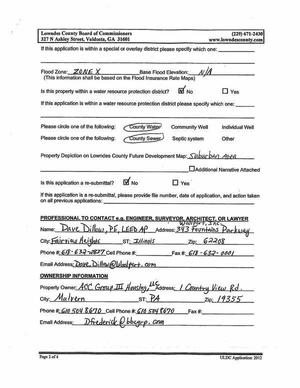 Lowndes County Board of Commissioners (229) 671-2430
327 N Ashley Street, Valdosta, GA 31601 www.lowndescounty.com
If this application is within a special or overlay district please specify which one:
Flood Zone: ZONE X Base Flood Elevation: N/A
(This information shall be based on the Flood Insurance Rate Maps)
Is this property within a water resource protection district? No Yes
If this application is within a water resource protection district please specify which one:
Please circle one of the following: County Water Community Well Individual Well
Please circle one of the following: County Sewer Septic system Other
Property Depiction on Lowndes County Future Development Map: Suburban Area
Additional Narrative Attached
Is this application a re-submittal? No Yes
If this application is a re-submittal, please provide file number, date of application, and action taken
on all previous applications:
PROFESSIONAL TO CONTACT e.g. ENGINEER, SURVEYOR, ARCHITECT, OR LAWYER
Woolpert, Inc.
Name: Dave Dillow, PE, LEED AP Address: 343 Fountains Parkway
City: Fairview Heights ST: Illinois Zip: 62208
Phone #: 618-632- Fax #: 618-632-0001
Email Address: Dave.Dillow@Woolpert.com
OWNERSHIP INFORMATION
Property Owner: AOC Group III Housing, LLC Address: 1 Country View Rd.
City: Malvern ST: PA Zip: 19355
Phone #: 610 504 8670 Cell Phone #: 610 504 8670 Fax #:
Email Address: Dfrederick@bbcgrp.com
Page 2 of 6 ULDC Application: 2012